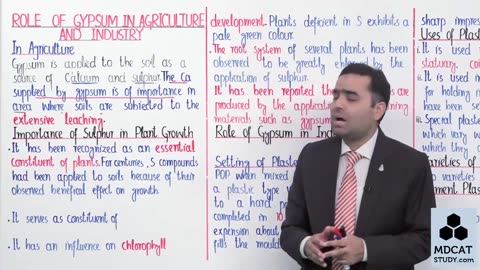 ROLE OF GYPSUM IN AGRICULTURE
AND INDUSTRY
In Agriculture
Gypsum is applied to the soil as a
source of Calcium and sulphur. The Ca
supplied by gypsum is of importance in
area where soils are subjected to the
extensive leaching.
Importance of Sulphur in Plant Growth
. It has been recognized as an essential
constituent of plants. For centuries, S compounds
had been applied to soils because of their
observed benefical effect on growth
. It serves as constituent of
. It has an influence on chlorophyll
development. Plants deficient in S exhibits a
pale green colour.
. The root system of several plants has been
observed to be greatly enlarged by the
application of sulphur.
It has been reported
produced by the application
materials such as gypsum
Role of Gypsum in
Setting of
POP when mixed
a plastic type
to a hard
completed in 10
expension about
fills the mould
sharp
Uses of
i. It is used
statuary, coin
ii. It is used
for holding
have been
iii. Special
which vary
which they
varieties of
varieties
MDCAT
STUDY.com